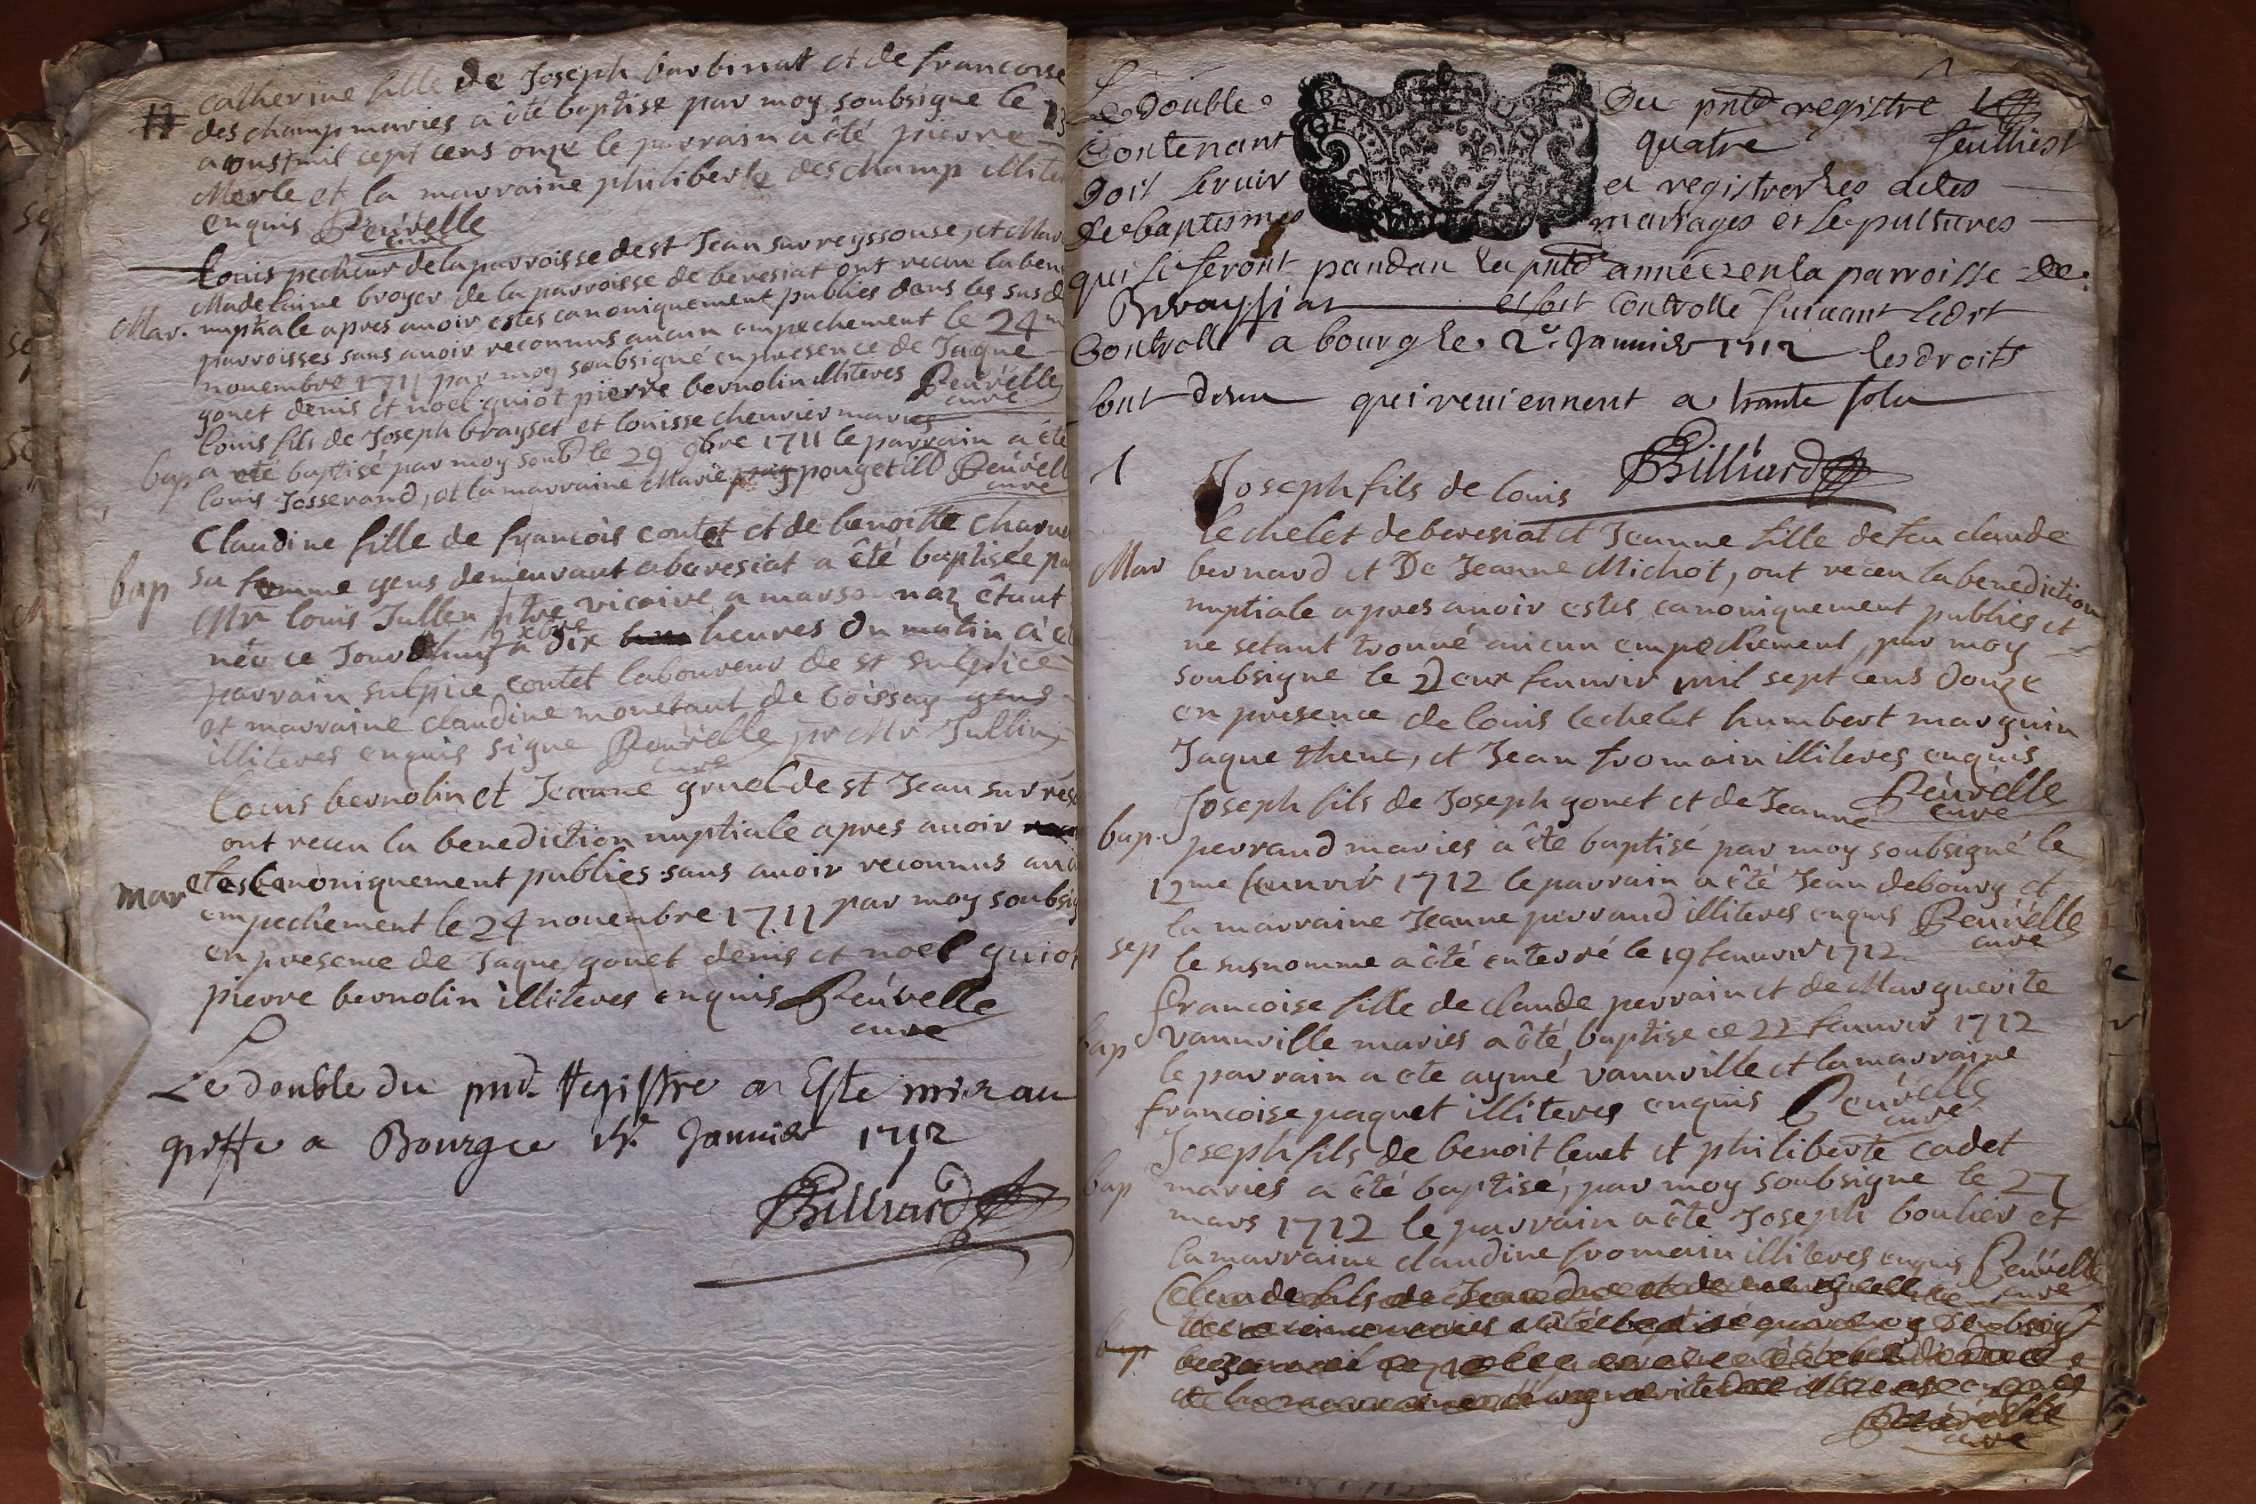 Catherine fille de Joseph barbinat et de francoise
des champ maries a êté baptise par moy soubsigne le 13
aoust mil cept cens onze le parrain a êté pierre
Merle et la marraine philiberte des champ illiter
enquis Reúvelle
curé
Louis pecheur de la parroisse de st Jean sur reyssouse, et
Madelaine broyer de la parroisse de beresiat ont receu la ben
Mar. nuptiale apres auoir estes canoniquement publies dans les sus d
parroisses sans auoir reconnus aucun empechement le 24 me
nouembre 1711 par moy soubsigné en presence de Jaque
gonet denis et noel guiot pierre bernolin illiteres Reúvelle
curé
Louis fils de Joseph brayset et louisse cheurier maries
bap a êté baptisé par moy soub le 29 9bre 1711 le parrain a êté
louis Josserand, et la marraine Marie pouget ill Reúvelle
curé
Claudine fille de francois contet et de benoitte
bap sa femme gens demeurant a beresiat a êté baptisée par
Mr louis Jullen ptre vicaire a marsonnaz êtant
née ce Jourdhuy a dix heures du matin a
parrain sulpice contet laboureur de st sulpice
et marraine claudine monetant de boissay gens
illiteres enquis signe Reúvelle pr Mr Jullin
curé
Louis bernolin et Jeanne gruel de st Jean sur
ont receu la benediction nuptiale apres auoir
Mar etes canoniquement publies sans auoir reconnus
empechement le 24 nouembre 1711 par moy soubsig
en presence de Jaque gonet denis et noel guiot
pierre bernolin illiteres enquis Reúvelle
curé
Le double du pnt Registre a Este mis au
greffe a Bourg ce Januier 1712
Billiard
Le double Du pnt registre
Contenant quatre feulliest
Doit seruir et registrer les actes
de baptesmes mariages et sepultures
qui se feront pandan la pnte année en la parroisse de
Brayssiat et soit Controlle suiuant ledit
Controlle a bourg le 2e Januier 1712 les droits
sont deus qui reuiennent a trante sols
Billiard
1
Joseph fils de louis
lechelet de beresiat et Jeanne fille de feu claude
Mar bernard et De Jeanne Michot, ont receu la benediction
nuptiale apres auoir estes canoniquement publies et
ne setant trouué aucun empechement, par moy
soubsigne le Deux feurier mil sept cens douze
en presence de louis lechelet humbert marguin
Jaque thene, et Jean fromain illiteres enquis
Reúvelle
curé
Joseph fils de Joseph gonet et de Jeanne
bap. perraud maries a êté baptisé par moy soubsigné le
12me feurier 1712 le parrain a êté Jean debourg et
la marraine Jeanne perraud illiteres enquis Reúvelle
curé
sep le susnomme a êté enterré le 19 feurier 1712
francoise fille de claude perrain et de Marguerite
bap vanuville maries a êté baptise ce 22 feurier 1712
le parrain a ete aymé vanuville et la marraine
francoise paquet illiteres enquis Reúvelle
curé
Joseph fils de benoit leuet et philiberte cadet
bap maries a êté baptisé, par moy soubsigne le 27
mars 1712 le parrain a êté Joseph boulier et
la marraine claudine fromain illiteres enquis Reúvelle
curé
Claude fils de Jean
bap
Reúvelle
curé